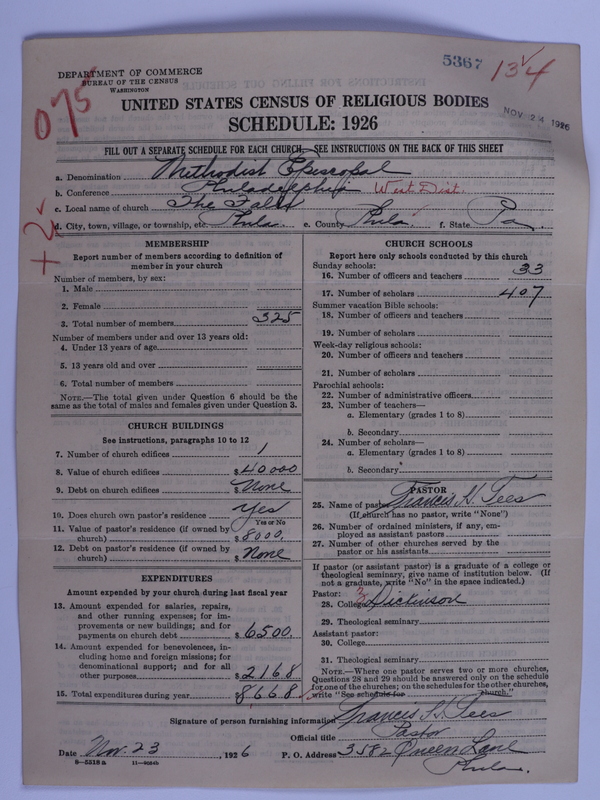 5367
134
DEPARTMENT OF COMMERCE
BUREAU OF THE CENSUS
WASHINGTON
075
NOV 24 1926
UNITED STATES CENSUS OF RELIGIOUS BODIES
SCHEDULE: 1926
FILL OUT A SEPARATE SCHEDULE FOR EACH CHURCH. SEE INSTRUCTIONS ON THE BACK OF THIS SHEET
a. Denomination Methodist Episcopal
b. Conference Philadelphia West Dist.
c. Local name of church The Falls
d. City, town, village, or township, etc. Phila. e. County Phila. f. State Pa.
+ 2
MEMBERSHIP
Report number of members according to definition of
member in your church
Number of members, by sex:
1. Male
2. Female
3. Total number of members 325
Number of members under and over 13 years old:
4. Under 13 years of age
5. 13 years old and over
6. Total number of members
NOTE.—The total given under Question 6 should be the
same as the total of males and females given under Question 3.
CHURCH BUILDINGS
See instructions, paragraphs 10 to 12
7. Number of church edifices 1
8. Value of church edifices $ 40000
9. Debt on church edifices $ None
10. Does church own pastor's residence Yes
Yes or No
11. Value of pastor's residence (if owned by
church) $ 8000.
12. Debt on pastor's residence (if owned by
church) $ None
EXPENDITURES
Amount expended by your church during last fiscal year
13. Amount expended for salaries, repairs,
and other running expenses; for im-
provements or new buildings; and for
payments on church debt $ 6500.
14. Amount expended for benevolences, in-
cluding home and foreign missions; for
denominational support; and for all
other purposes $ 2168
15. Total expenditures during year $ 8668
CHURCH SCHOOLS
Report here only schools conducted by this church
Sunday schools:
16. Number of officers and teachers 33
17. Number of scholars 407
Summer vacation Bible schools:
18. Number of officers and teachers
19. Number of scholars
Week-day religious schools:
20. Number of officers and teachers
21. Number of scholars
Parochial schools:
22. Number of administrative officers
23. Number of teachers—
a. Elementary (grades 1 to 8)
b. Secondary
24. Number of scholars—
a. Elementary (grades 1 to 8)
b. Secondary
PASTOR
25. Name of pastor Francis H. Tees
(If church has no pastor, write "None")
26. Number of ordained ministers, if any, em-
ployed as assistant pastors
27. Number of other churches served by the
pastor or his assistants
If pastor (or assistant pastor) is a graduate of a college or
theological seminary, give name of institution below. (If
not a graduate, write "No" in the space indicated.)
Pastor:
28. College Dickinson
29. Theological seminary
Assistant pastor:
30. College
31. Theological seminary
NOTE.—Where one pastor serves two or more churches,
Questions 28 and 29 should be answered only on the schedule
for one of the churches; on the schedules for the other churches,
write "See schedule for church."
Signature of person furnishing information Francis H. Tees
Official title Pastor
Date Nov. 23, 1926 P. O. Address 3582 Queen Lane
Phila.
8—5518a 11—9024b